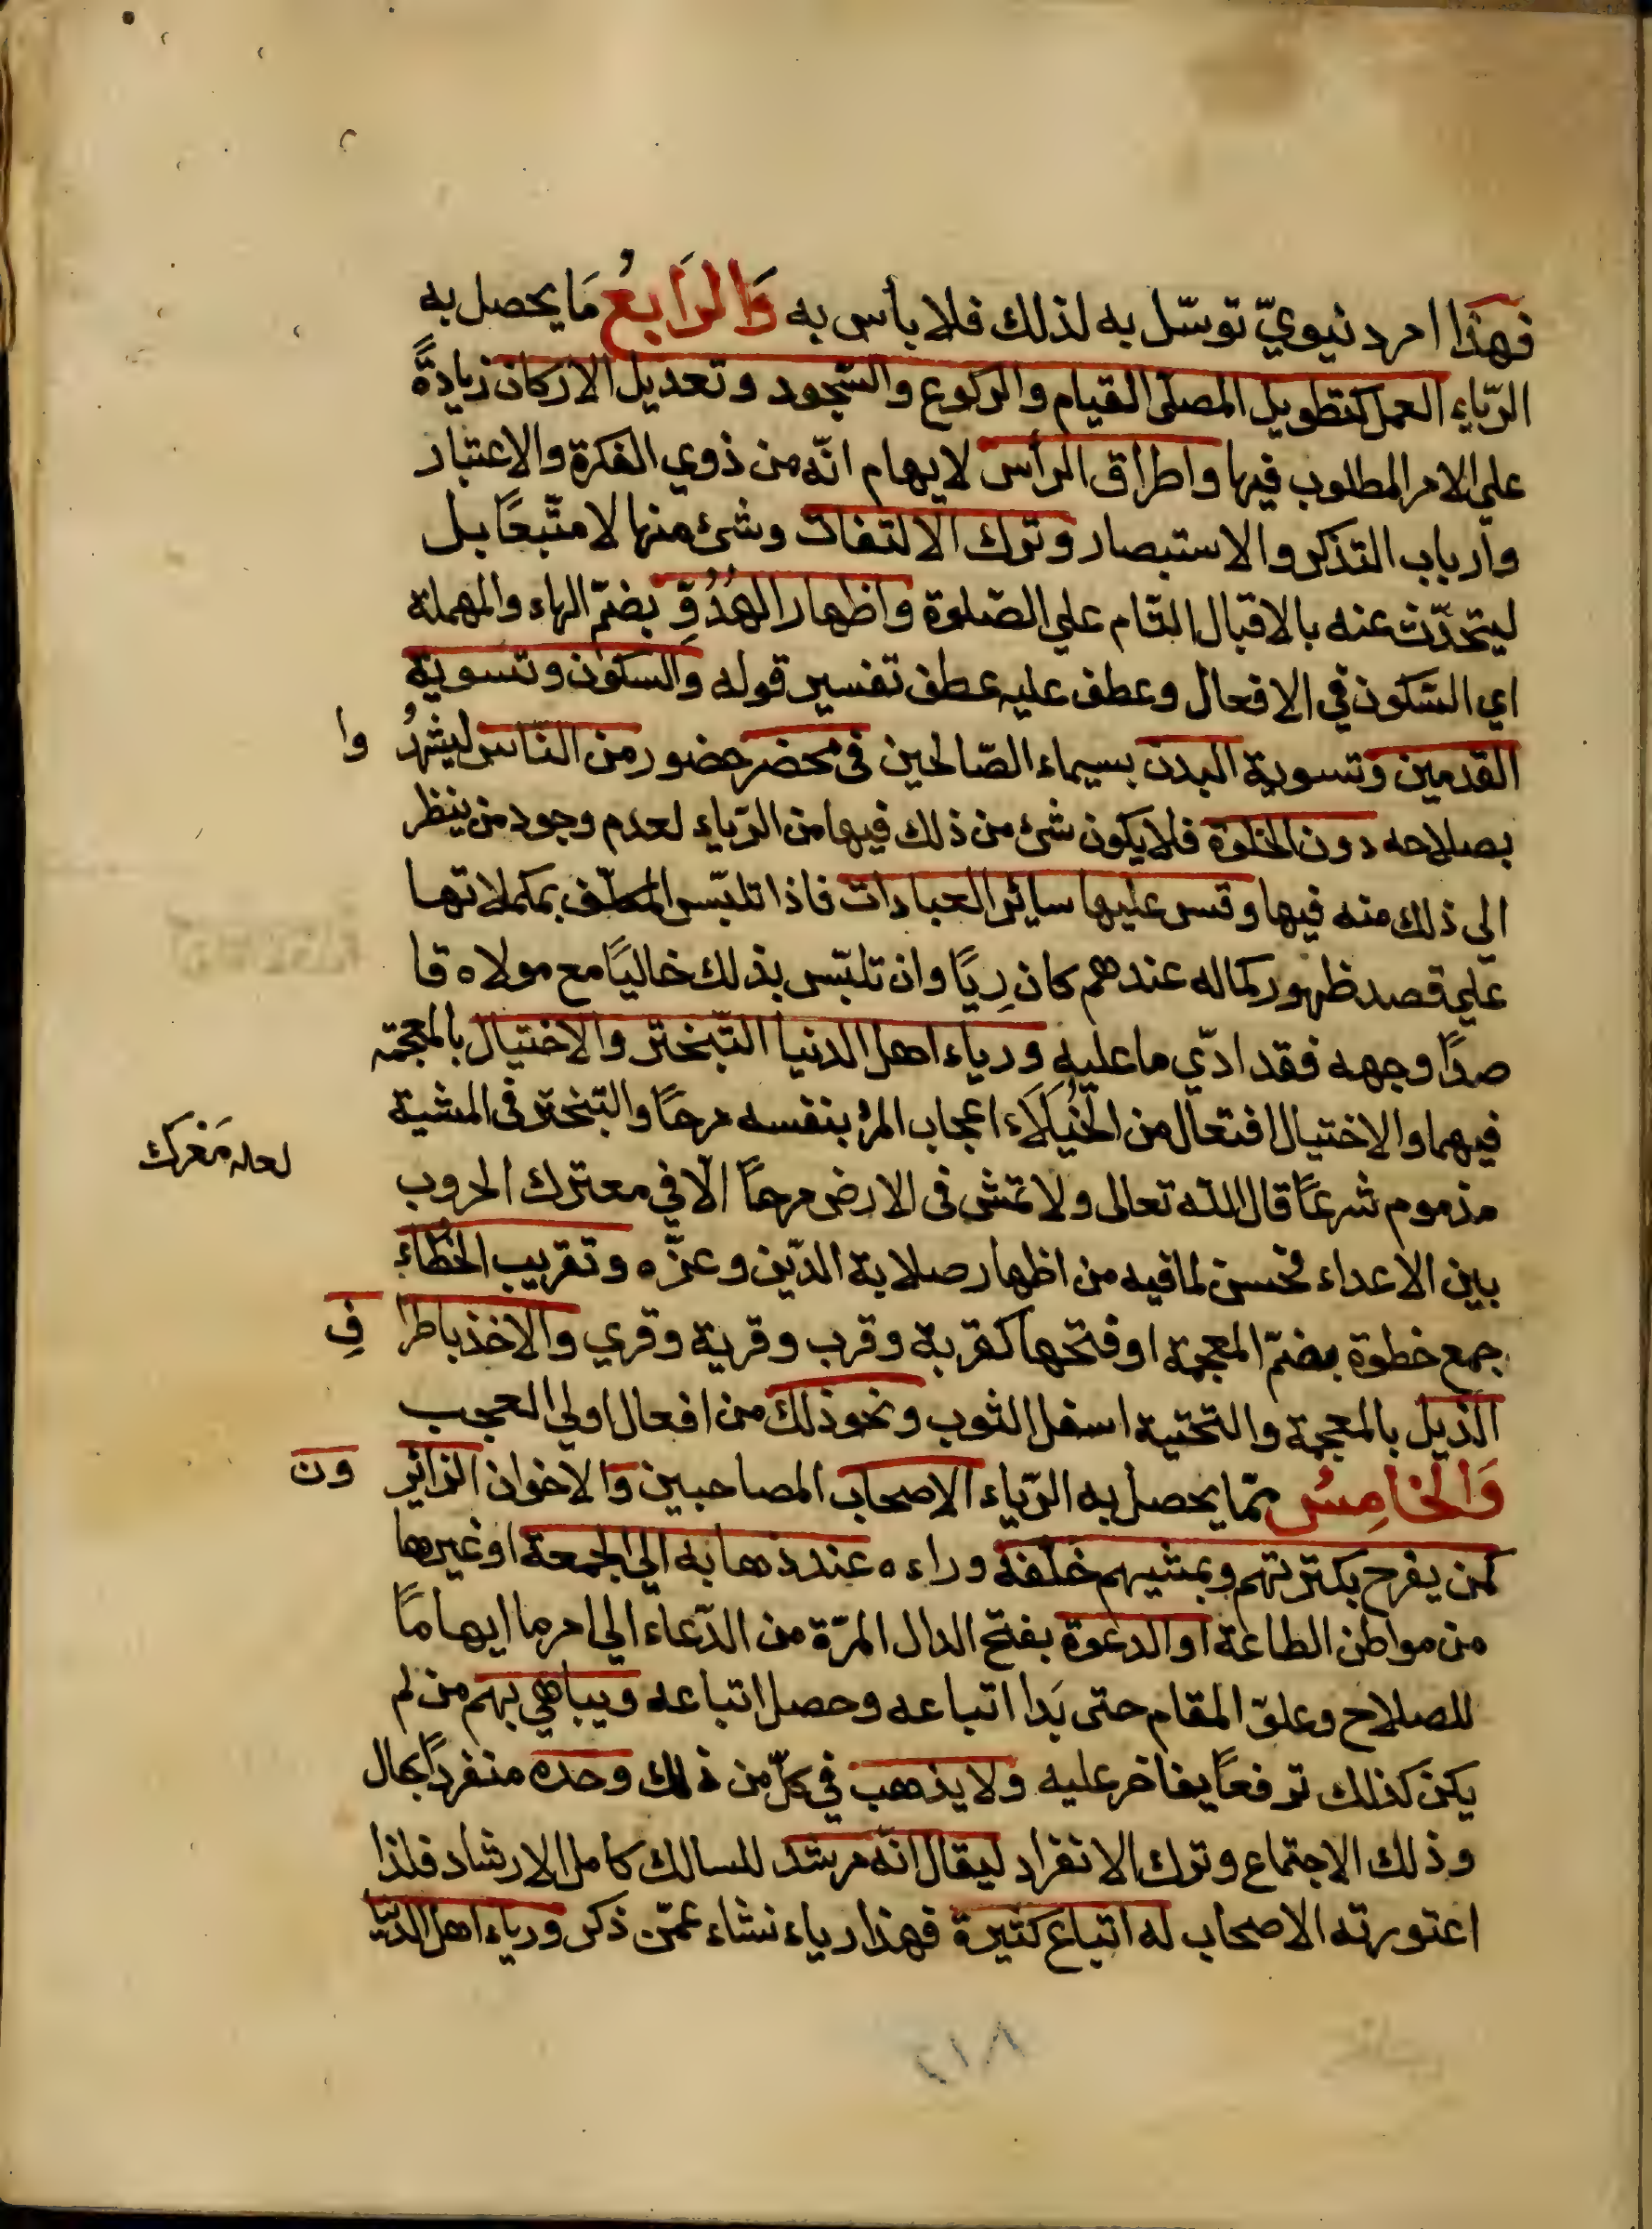 فهذا امر دنيويّ توسّل به لذلك فلا بأس به وَالرَابعُ مَا يحصل به
الرّياء العمل كتطويل المصلى القيام والركوع والسّجود وتعديل الاركان زيادةً
على الامر المطلوب فيها واطراق الرأس لايهام انّه من ذوي الفكرة والاعتبار
وارباب التذكر والاستبصار وترك الالتفات وشئ منها لا متّبعًا بل
ليتحدّث عنه بالاقبال التام على الصّلوة واظهار الهُدُوّ بضمّ الهاء والمهملة
اي السّكون في الافعال وعطف عليه عطف تفسير قوله والسكون وتسوية
القدمين وتسوية البدن بسيماء الصّالحين في محضر حضور من الناس ليشهدُ وا
بصلاحه دون الخلوة فلا يكون شئ من ذلك فيها من الرّياء لعدم وجود من ينظر
الي ذلك منه فيها وقس عليها سائر العبادات فاذا تلبّس المكلّف بمكملاتها
علي قصد ظهور كماله عندهم كان رِيًا وان تلبّس بذلك خاليًا مع مولاه قا
صدًا وجهه فقد ادّي ما عليه ورياء اهل الدنيا التّبختر والاختيال بالمعجمة
فيهما والاختيال افتعال من الخُيَلَاء اعجاب المرْ بنفسه مرحًا والتبختر في المشية
مذموم شرعًا قال اللّه تعالى ولا تمش في الارض مرحًا الّا في معترك الحروب
لعله مَعْرك
بين الاعداء فحسن لما فيه من اظهار صلابة الدّين وعزّه وتقريب الخُطاء
جمع خطوة بضمّ المعجمة او فتحها كقربة وقرب وقرية وقري والاخذ باطرا فِ
الذيل بالمعجمة والتحتية اسفل الثوب ونحو ذلك من افعال اولي العجب
وَالخامِسُ ممّا يحصل به الرّياء الاصحاب المصاحبين والاخوان الزائر ون
كمن يفرح بكثرتهم وبمشيهم خلفه وراءه عند ذهابه الي الجمعة او غيرها
من مواطن الطاعة او الدعوة بفتح الدال المرّة من الدّعاء الي امر ما ايهامًا
للصلاح وعلوّ المقام حتى بَدا اتباعه وحصل اتباعه ويباهي بهم من لم
يكن كذلك ترفعًا يفاخر عليه ولا يذهب في كلّ من ذلك وحده منفردًا بحال
وذلك الاجتماع وترك الانفراد ليقال انّه مرشد للسالك كامل الارشاد فلذا
اعتورته الاصحاب له اتباع كثيرة فهذا رياء نشاء عمّن ذكر ورياء اهل الدّنيا
٢١٨